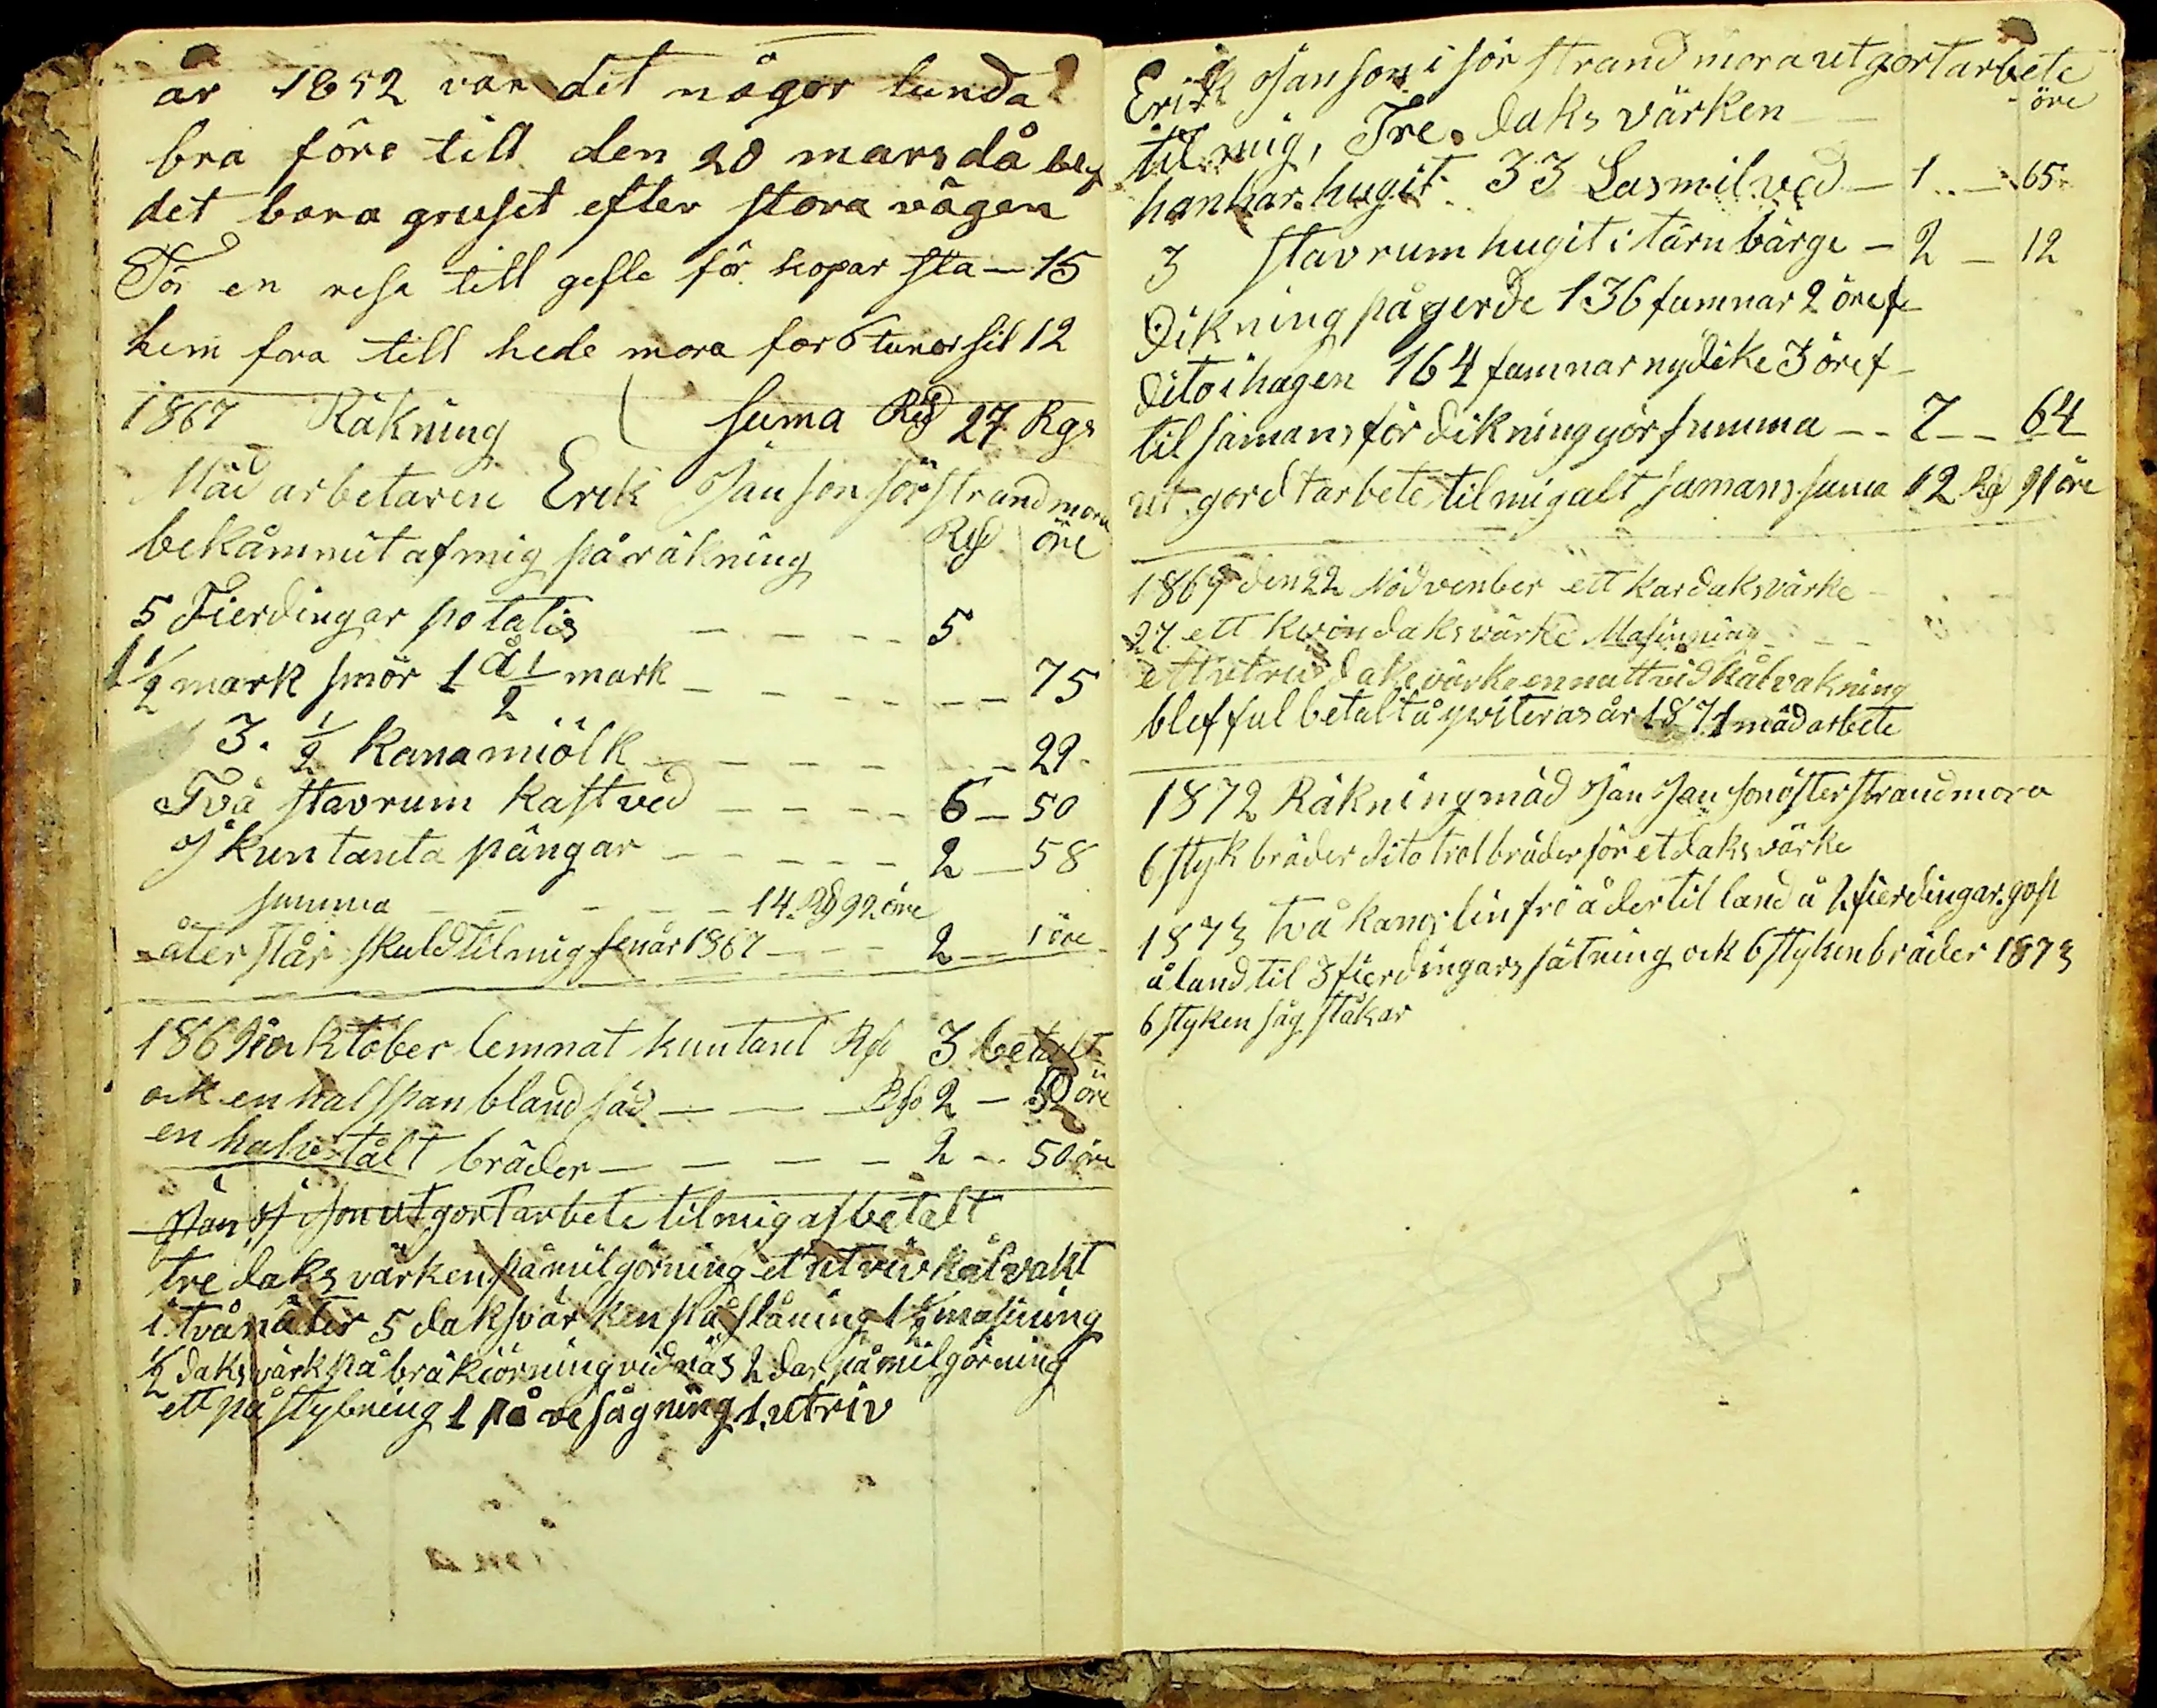 år 1852 var det någor lunda
bra före till den 20 mars då blef
det bara gruset efter stora vägen
För en resa till gefle för kopar sta — 15
hem fora till hede mora for 6 tunor sil 12
suma Rd 27 Rgs
1867 Räkning
Mäd arbetaren Erik Janson sör strandmora
bekåmmit af mig på räkning Rd öre
5 Fierdingar potatis — — — — 5
1 1/2 mark smör 1 å 1/2 mark — — — — — 75
3. 1/2 kana miölk — — — — — 29
Två stavrum kastved — — — — 6 — 50
J kuntanta pängar — — — — — 2 — 58
summa — — — — 14 Rd 92 öre
åter står skuld til mig fenår 1867 — — — 2 — 1 öre
1869 oktober lemnat kuntant Rd 3 betalt
ock en half span bland säd — — — Rd 2 — öre
en halv tålt bräder — — — — — 2 — 50 öre
Jan J son utgort arbete til mig afbetalt
tre daks värken på milgörning et utriv kålvakt
i två näter 5 daksvärken på slåning 1 1/2 masining
1/2 daks värk på bräkiörning vid näs 2 dar på milgörning
ett på stybning 1 på ve sågning 1 utriv
Erik Janson i sör strandmora utgort arbete
til mig, Tre daks värken — — öre
han har hugit 33 Lasmilved — 1 — 65
3 stavrum hugit i tärnbärge — 2 — 12
Dikning på gerde 136 famnar 2 öre f
Dito i hagen 164 famnar nydike 3 öre f —
til samans för dikning gör summa — — 7 — — 64
ut gordt arbete til mig alt samans suma 12 Rd 91 öre
1869 den 22 Nodvenber ett kar daksvärke
27 ett kvin daksvärke Masinning — — —
ett utriv daksvärke en natt vid kålvakning
blef ful betalt å qwiteras år 1871 mäd arbete
1872 Räkning mäd Jan Janson öster strandmora
6 styk bräder dito trolbräder för et daksvärke
1873 två kanor linfrö å der til land å 2 fierdingar gop
å land til 3 fierdingars sätning ock 6 styken bräder 1873
6 styken såg ståkar